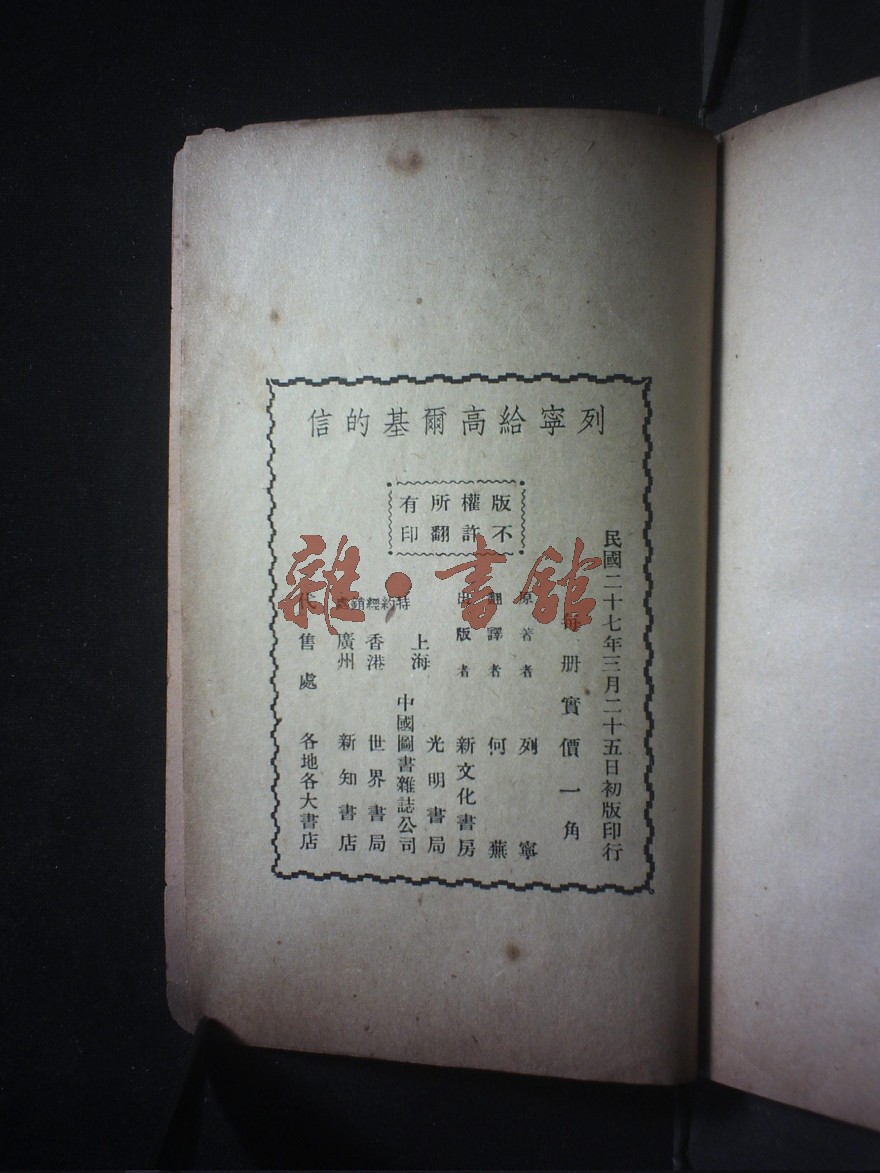 列寧給高爾基的信
版權所有
不許翻印
民國二十七年三月二十五日初版印行
每冊實價一角
原著者 列寧
翻譯者 何蕪
出版者 新文化書房
特約經銷處
上海 光明書局
中國圖書雜誌公司
香港 世界書局
廣州 新知書店
代售處 各地各大書店
雜·書館